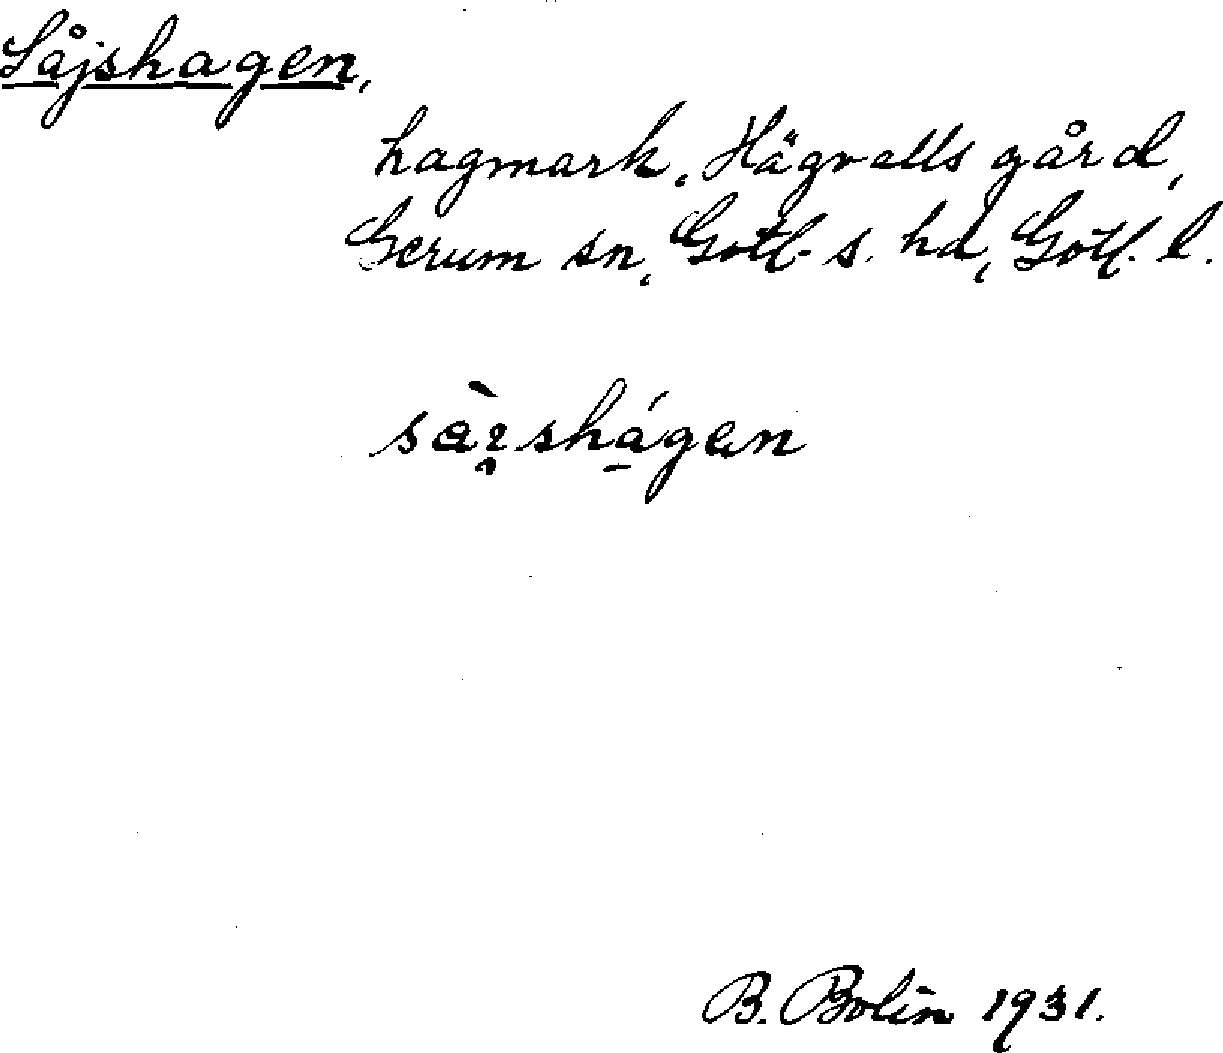 Såjshagen,
hagmark, Hägvalls gård,
Gerum sn, Gotl. s. hd, Gotl. l.
B. Bolin 1931.